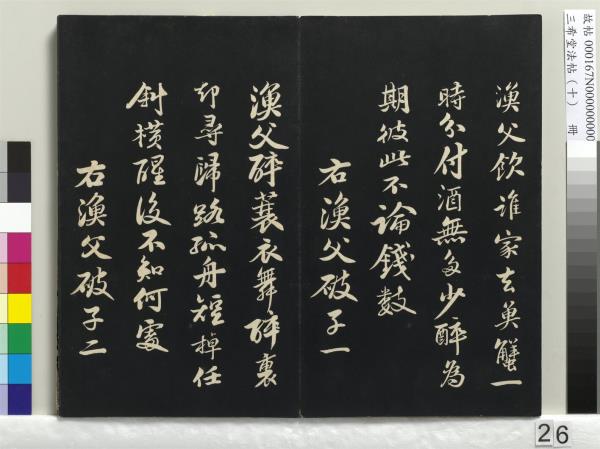 漁父飲誰家去魚蟹一
時分付酒無多少醉為
期彼此不論錢數
右漁父破子一
漁父醉蓑衣舞醉裏
却尋歸路孤舟短棹任
斜横醒後不知何處
右漁父破子二
故帖 000167N000000000
三希堂法帖（十） 冊
26